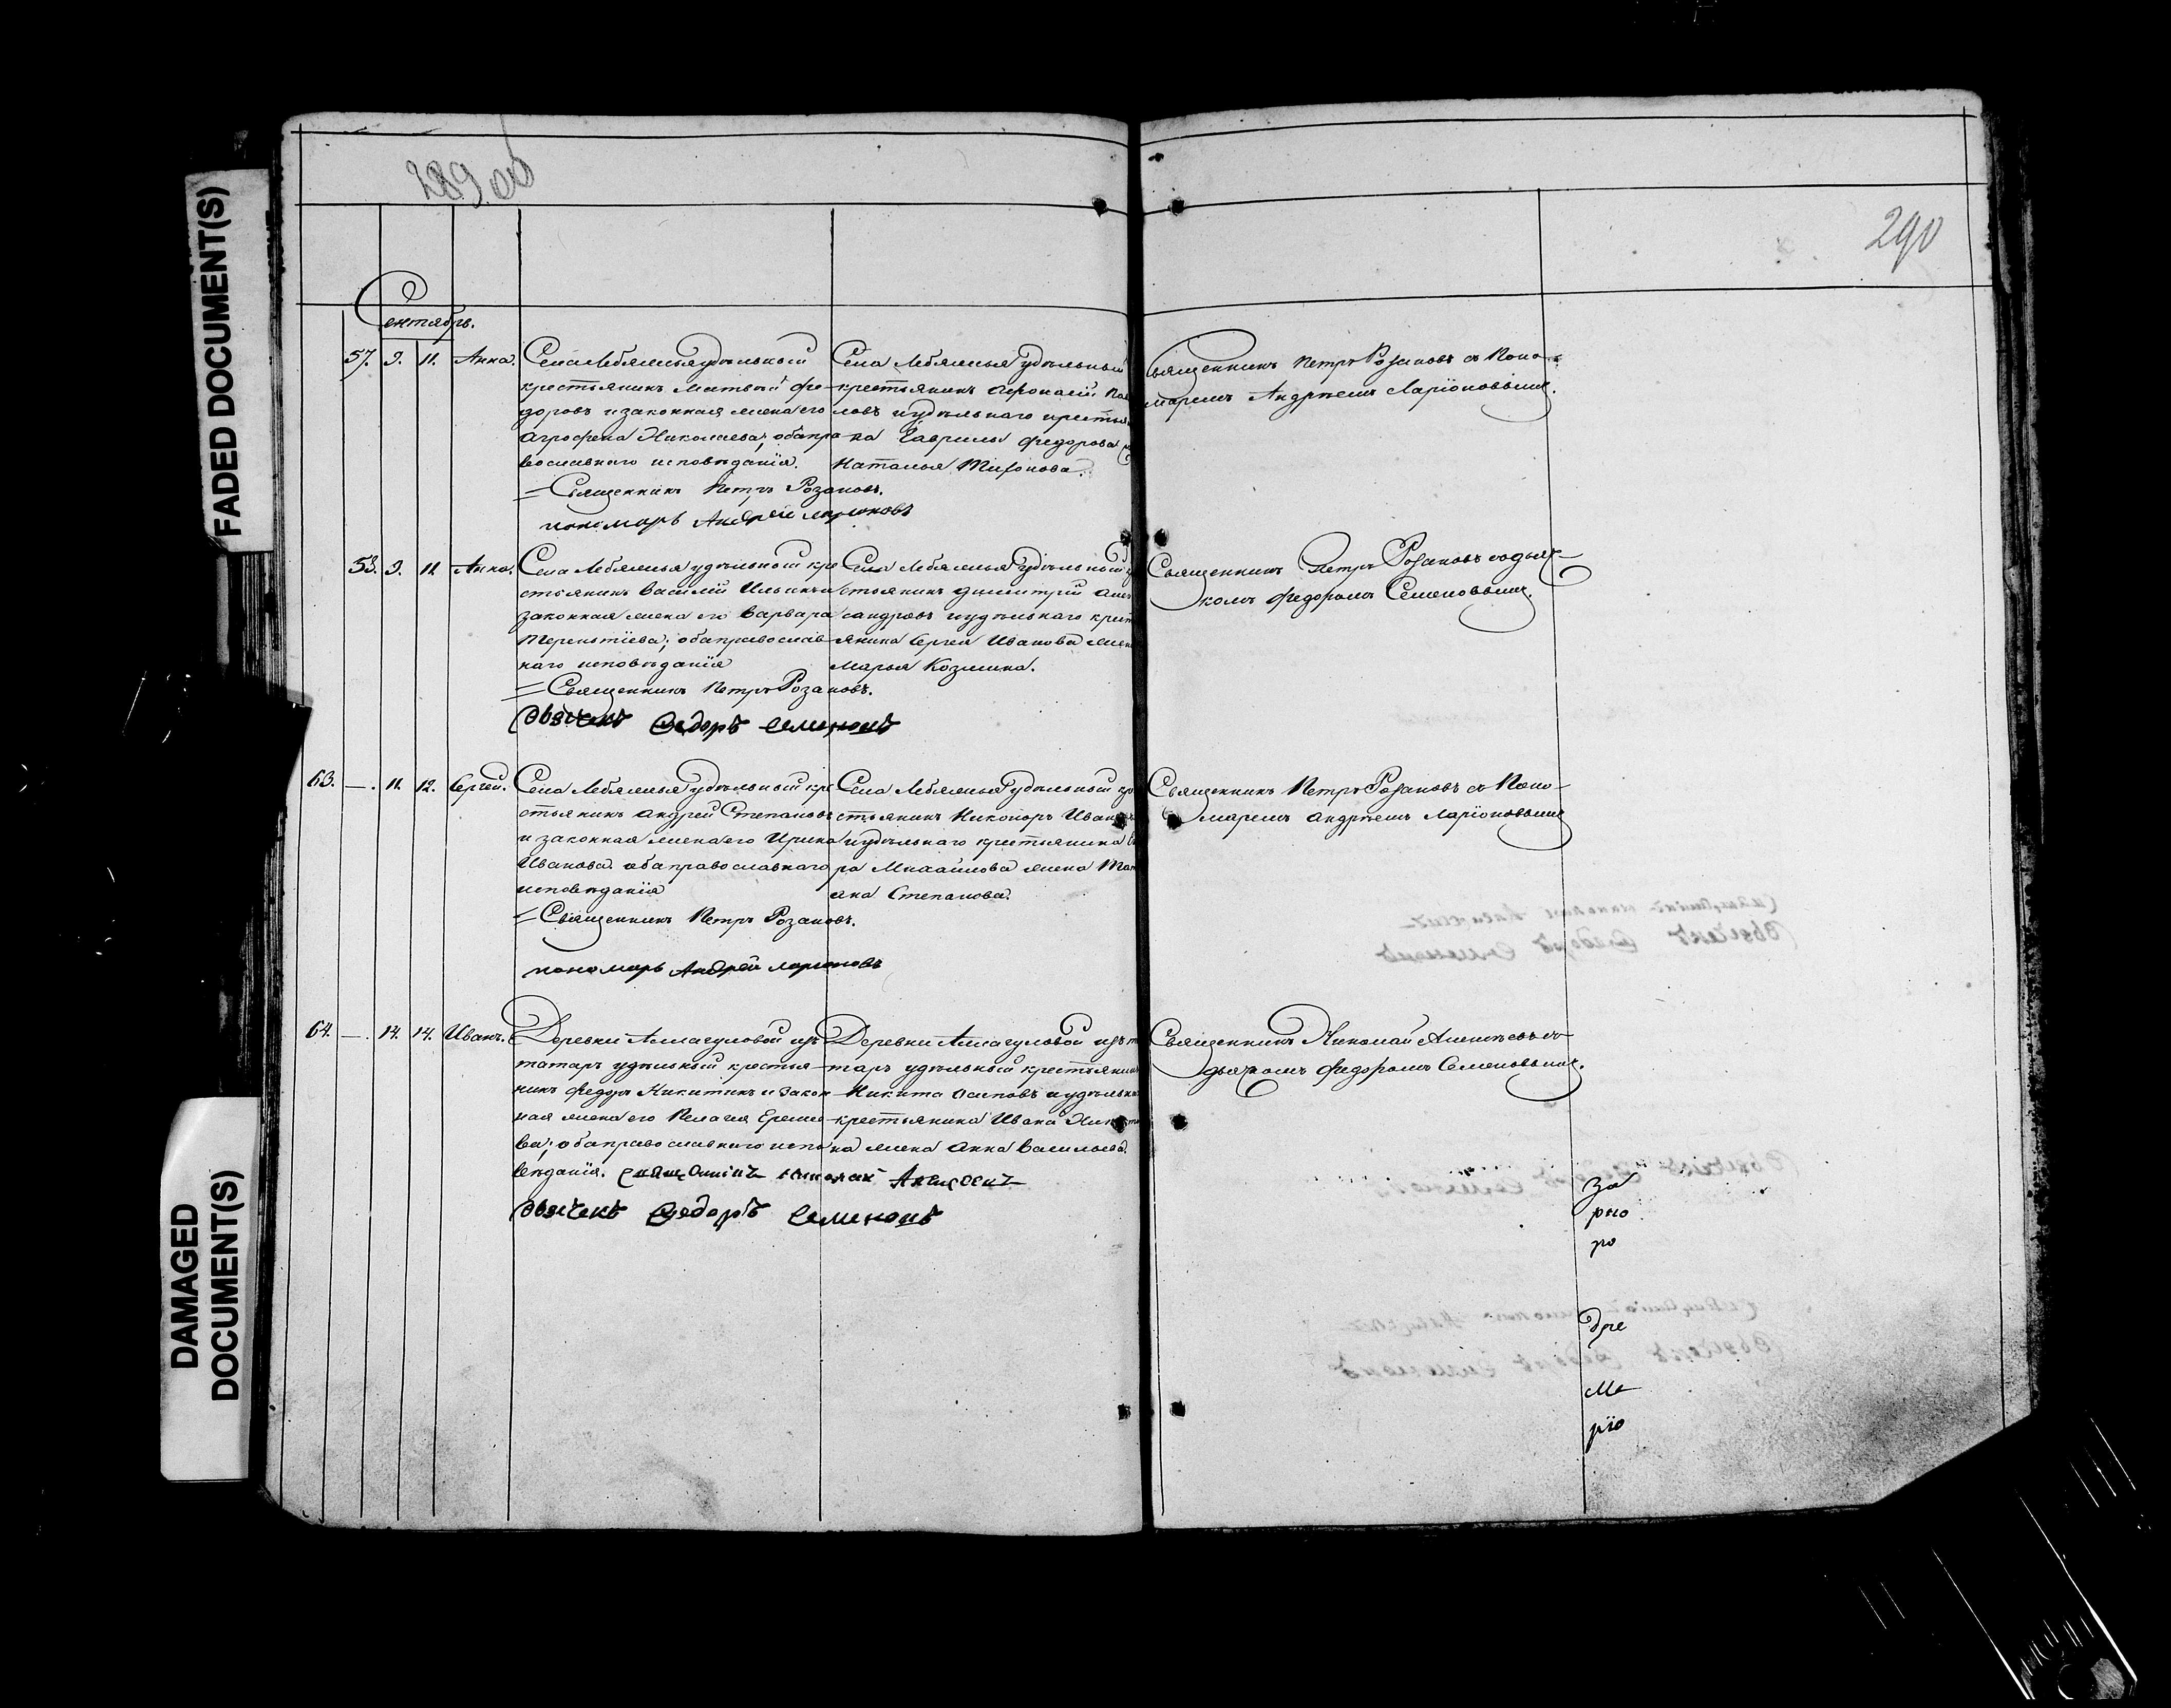 FADED DOCUMENT(S)
DAMAGED DOCUMENT(S)
289 об
290
Сентябрь.
57. 9. 11. Анна.
Села Лебяжья удѣльный
крестьянинъ Матвей Фе-
доровъ и законная жена его
Агрофена Николаева; оба пра
вославнаго исповѣданія.
Села Лебяжья удѣльный
крестьянинъ Афонасій
ловъ и удѣльнаго крестья
на Гаврилы Федорова
Наталья
Священникъ Петръ Розановъ съ Поно-
маремъ Андреемъ Ларіоновымъ.
Священникъ Петръ Розановъ.
пономарь Андрей Ларионовъ
58. 9. 11. Анна.
Села Лебяжья удѣльный кре
стьянинъ Василій Ильинъ и
законная жена его Варвара
Терентіева; оба православ
наго исповѣданія
Села Лебяжья удѣльный
стьянинъ Димитрій Алек
сандровъ и удѣльнаго крест
янина Сергея Иванова жена
Марья Козмина.
Священникъ Петръ Розановъ со дьяч-
комъ Федоромъ Семеновымъ.
Священникъ Петръ Розановъ.
Дьячекъ Ѳедоръ Семеновъ
63. —. 11. 12. Сергей.
Села Лебяжья удѣльный кре
стьянинъ Андрей Степановъ
и законная жена его Ирина
Иванова оба православнаго
исповѣданія
Села Лебяжья удѣльный кре
стьянинъ Никоноръ Иванов
и удѣльнаго крестьянина
ра Михайлова жена Тать
яна Степанова.
Священникъ Петръ Розановъ съ Поно-
маремъ Андреемъ Ларіоновымъ
Священникъ Петръ Розановъ.
пономарь Андрей Ларионовъ
64. —. 14. 14. Иванъ.
Деревни Аллагуловой изъ
татаръ удѣльный крестья-
нинъ Федоръ Никитинъ и закон
ная жена его Пелагия Ереме
ва; оба православнаго испо
вѣданія.
Деревни Аллагуловой изъ т
таръ удѣльный крестьянинъ
Никита Осиповъ и удѣльна
крестьянина Ивана Никити
на жена Анна Васильева.
Священникъ Николай Алексеевъ со
дьячкомъ Федоромъ Семеновымъ.
Священникъ Николай Алексеевъ
Дьячекъ Ѳедоръ Семеновъ
за
рио
ро
дре
Ма
ріо